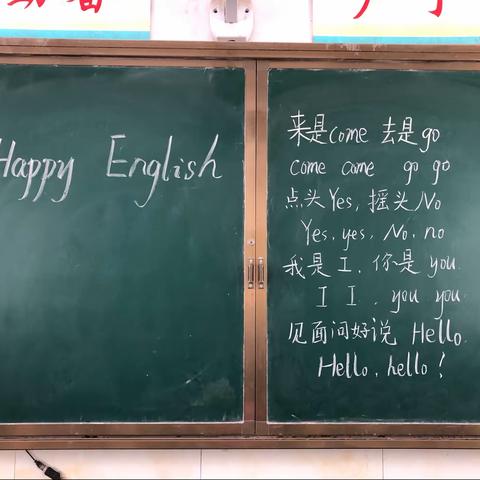 Happy English
来是come 去是go
come come go go
点头Yes, 摇头No
Yes, yes, No, no
我是I, 你是you.
I I, you you
见面问好说 Hello.
Hello, hello!